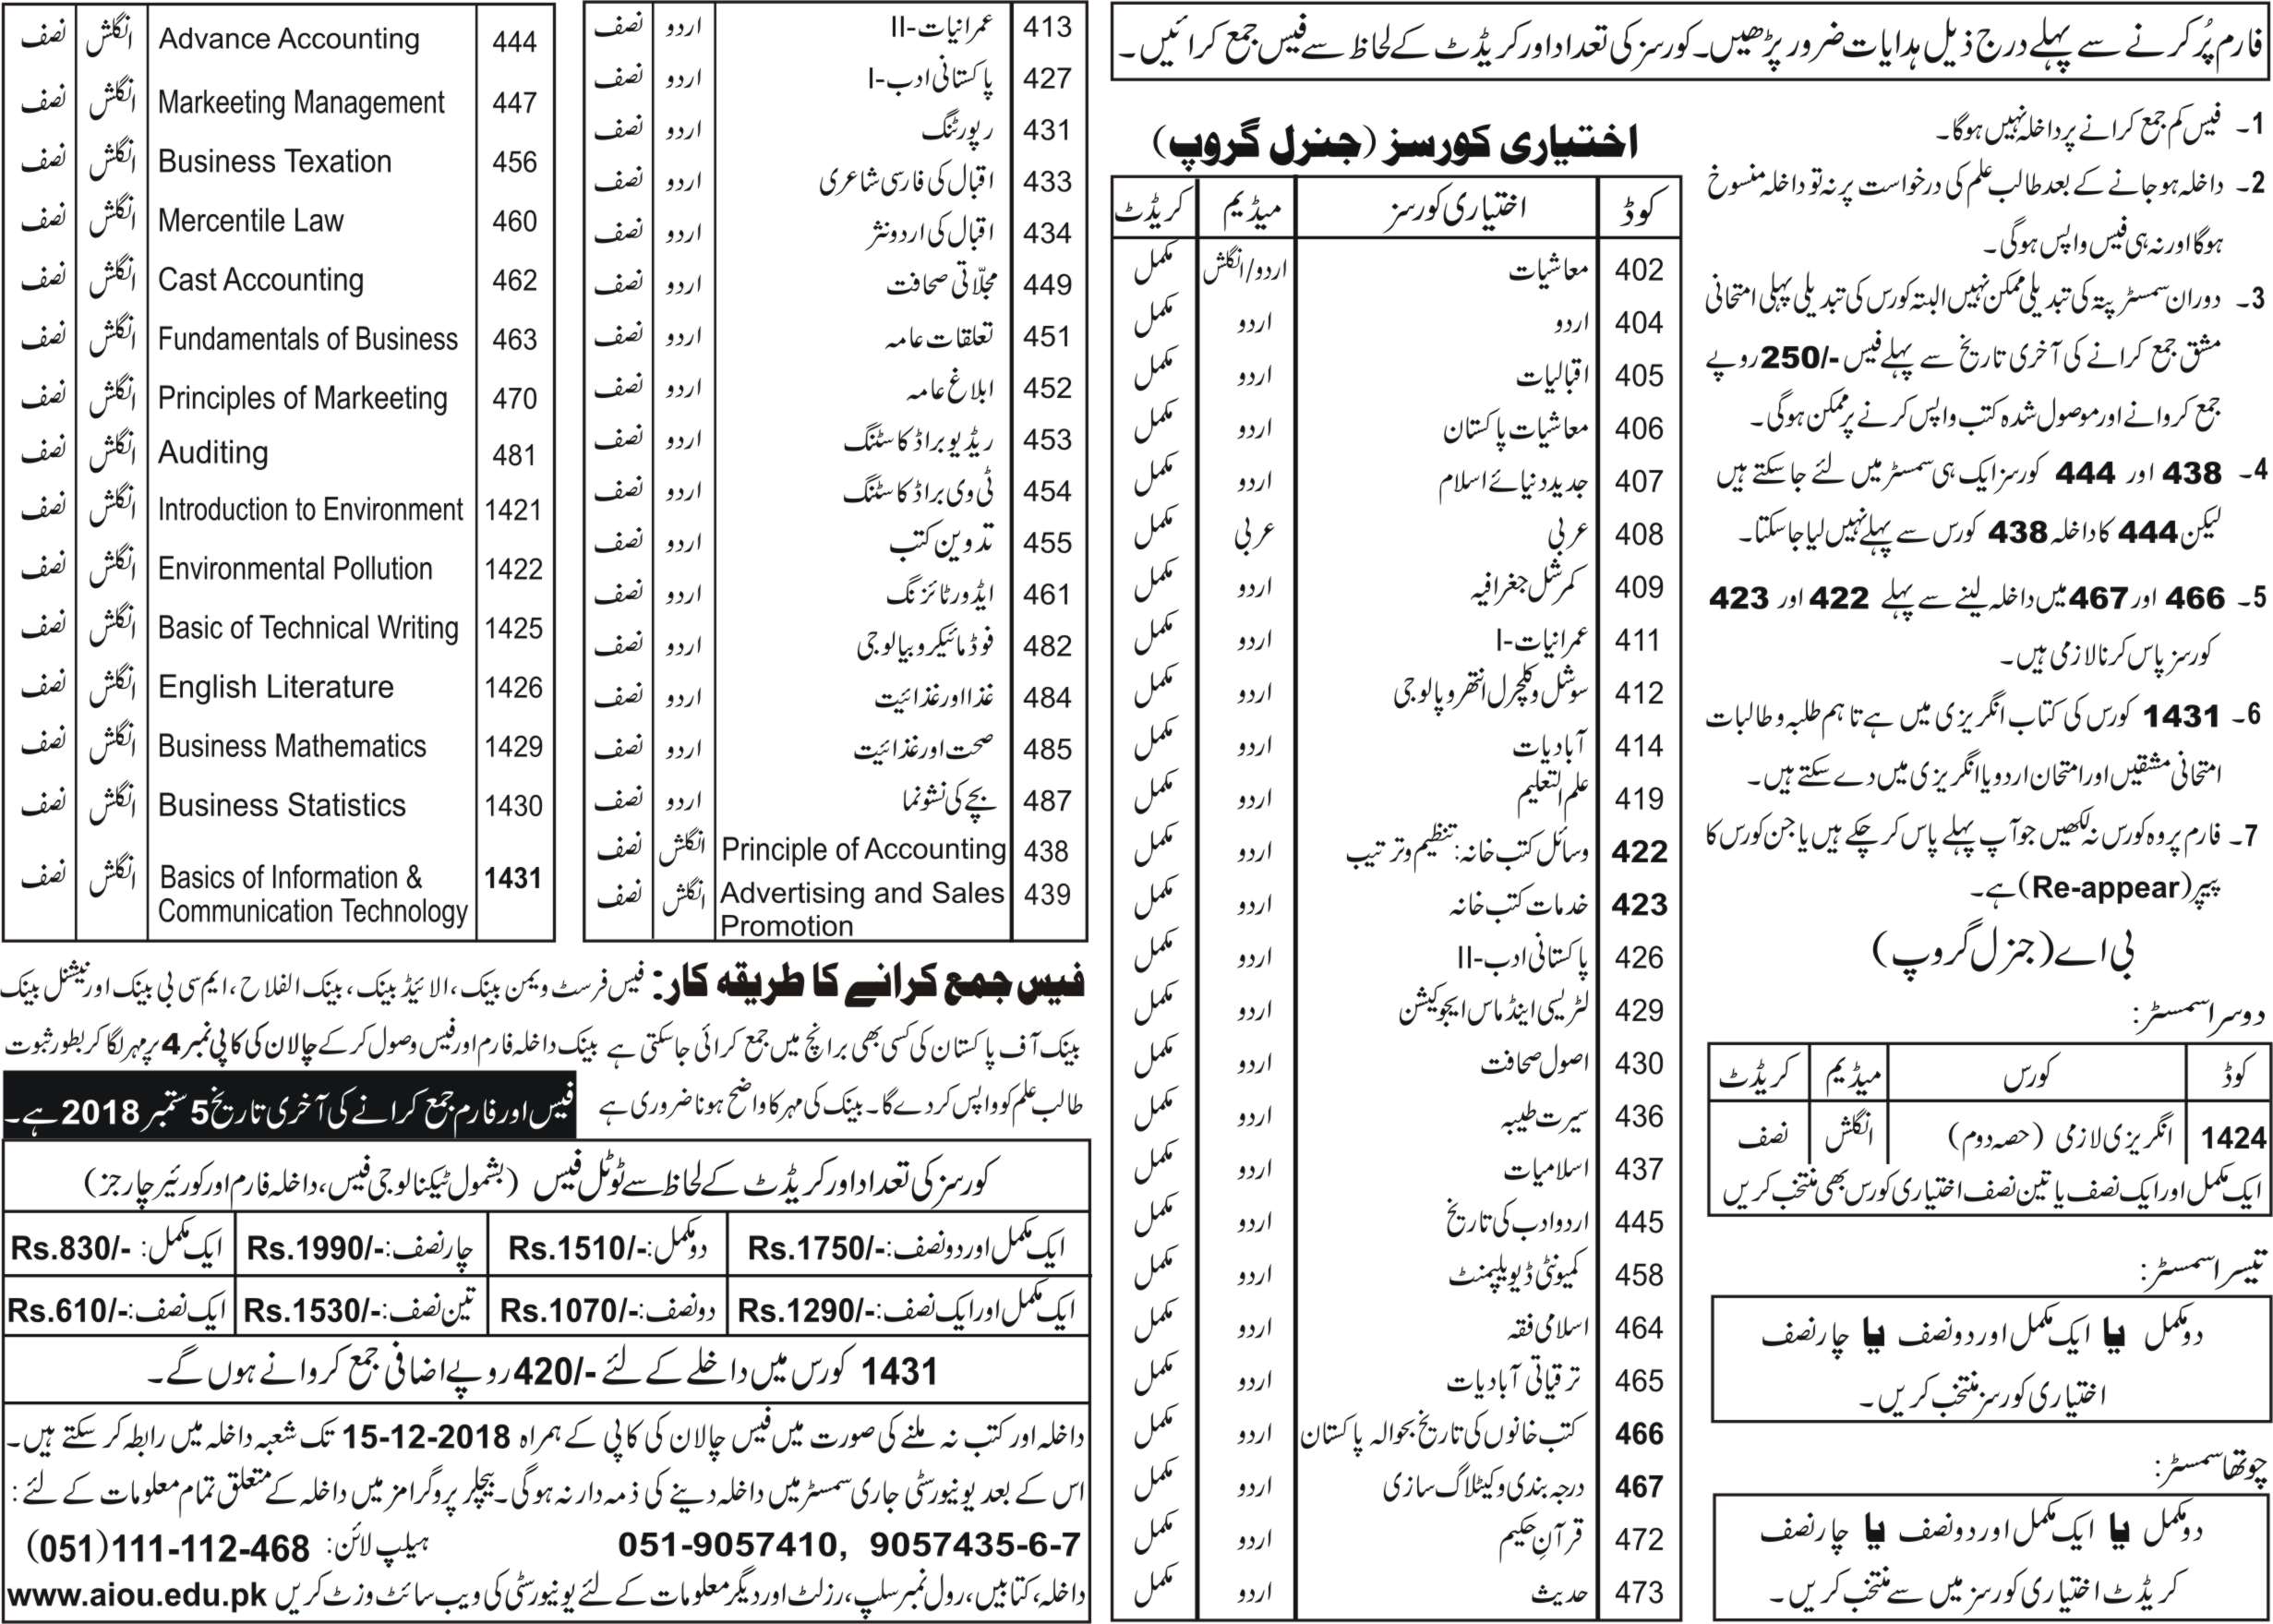 فارم پُر کرنے سے پہلے درج ذیل ہدایات ضرور پڑھیں۔ کورسز کی تعداد اور کریڈٹ کے لحاظ سے فیس جمع کرائیں۔
1۔ فیس کم جمع کرانے پر داخلہ نہیں ہوگا۔
2۔ داخلہ ہو جانے کے بعد طالب علم کی درخواست پر نہ تو داخلہ منسوخ
ہوگا اور نہ ہی فیس واپس ہوگی۔
3۔ دوران سمسٹر پتہ کی تبدیلی ممکن نہیں البتہ کورس کی تبدیلی پہلی امتحانی
مشق جمع کرانے کی آخری تاریخ سے پہلے فیس -/250 روپے
جمع کروانے اور موصول شدہ کتب واپس کرنے پر ممکن ہوگی۔
4۔ 438 اور 444 کورسز ایک ہی سمسٹر میں لئے جا سکتے ہیں
لیکن 444 کا داخلہ 438 کورس سے پہلے نہیں لیا جا سکتا۔
5۔ 466 اور 467 میں داخلہ لینے سے پہلے 422 اور 423
کورسز پاس کرنا لازمی ہیں۔
6۔ 1431 کورس کی کتاب انگریزی میں ہے تاہم طلبہ و طالبات
امتحانی مشقیں اور امتحان اردو یا انگریزی میں دے سکتے ہیں۔
7۔ فارم پر وہ کورس نہ لکھیں جو آپ پہلے پاس کر چکے ہیں یا جن کورس کا
پیپر (Re-appear) ہے۔
بی اے (جنرل گروپ)
دوسرا سمسٹر:
کوڈ کورس میڈیم کریڈٹ
1424 انگریزی لازمی (حصہ دوم) انگلش نصف
ایک مکمل اور ایک نصف یا تین نصف اختیاری کورس بھی منتخب کریں
تیسرا سمسٹر:
دو مکمل یا ایک مکمل اور دو نصف یا چار نصف
اختیاری کورسز منتخب کریں۔
چوتھا سمسٹر:
دو مکمل یا ایک مکمل اور دو نصف یا چار نصف
کریڈٹ اختیاری کورسز میں سے منتخب کریں۔
اختیاری کورسز (جنرل گروپ)
کوڈ اختیاری کورسز میڈیم کریڈٹ
402 معاشیات اردو/انگلش مکمل
404 اردو اردو مکمل
405 اقبالیات اردو مکمل
406 معاشیات پاکستان اردو مکمل
407 جدید دنیائے اسلام اردو مکمل
408 عربی عربی مکمل
409 کمرشل جغرافیہ اردو مکمل
411 عمرانیات-I اردو مکمل
412 سوشل و کلچرل انتھروپالوجی اردو مکمل
414 آبادیات اردو مکمل
419 علم التعلیم اردو مکمل
422 وسائل کتب خانہ: تنظیم و ترتیب اردو مکمل
423 خدمات کتب خانہ اردو مکمل
426 پاکستانی ادب-II اردو مکمل
429 لٹریسی اینڈ ماس ایجوکیشن اردو مکمل
430 اصول صحافت اردو مکمل
436 سیرت طیبہ اردو مکمل
437 اسلامیات اردو مکمل
445 اردو ادب کی تاریخ اردو مکمل
458 کمیونٹی ڈیویلپمنٹ اردو مکمل
464 اسلامی فقہ اردو مکمل
465 ترقیاتی آبادیات اردو مکمل
466 کتب خانوں کی تاریخ بحوالہ پاکستان اردو مکمل
467 درجہ بندی و کیٹلاگ سازی اردو مکمل
472 قرآنِ حکیم اردو مکمل
473 حدیث اردو مکمل
413 عمرانیات-II اردو نصف
427 پاکستانی ادب-I اردو نصف
431 رپورٹنگ اردو نصف
433 اقبال کی فارسی شاعری اردو نصف
434 اقبال کی اردو نثر اردو نصف
449 مجلّاتی صحافت اردو نصف
451 تعلقات عامہ اردو نصف
452 ابلاغ عامہ اردو نصف
453 ریڈیو براڈ کاسٹنگ اردو نصف
454 ٹی وی براڈ کاسٹنگ اردو نصف
455 تدوین کتب اردو نصف
461 ایڈورٹائزنگ اردو نصف
482 فوڈ مائیکروبیالوجی اردو نصف
484 غذا اور غذائیت اردو نصف
485 صحت اور غذائیت اردو نصف
487 بچے کی نشوونما اردو نصف
438 Principle of Accounting انگلش نصف
439 Advertising and Sales انگلش نصف
Promotion
444 Advance Accounting انگلش نصف
447 Markeeting Management انگلش نصف
456 Business Texation انگلش نصف
460 Mercentile Law انگلش نصف
462 Cast Accounting انگلش نصف
463 Fundamentals of Business انگلش نصف
470 Principles of Markeeting انگلش نصف
481 Auditing انگلش نصف
1421 Introduction to Environment انگلش نصف
1422 Environmental Pollution انگلش نصف
1425 Basic of Technical Writing انگلش نصف
1426 English Literature انگلش نصف
1429 Business Mathematics انگلش نصف
1430 Business Statistics انگلش نصف
1431 Basics of Information & انگلش نصف
Communication Technology
فیس جمع کرانے کا طریقہ کار: فیس فرسٹ ویمن بینک، الائیڈ بینک، بینک الفلاح، ایم سی بی بینک اور نیشنل بینک
بینک آف پاکستان کی کسی بھی برانچ میں جمع کرائی جا سکتی ہے بینک داخلہ فارم اور فیس وصول کر کے چالان کی کاپی نمبر 4 پر مہر لگا کر بطور ثبوت
طالب علم کو واپس کر دے گا۔ بینک کی مہر کا واضح ہونا ضروری ہے فیس اور فارم جمع کرانے کی آخری تاریخ 5 ستمبر 2018 ہے۔
کورسز کی تعداد اور کریڈٹ کے لحاظ سے ٹوٹل فیس (بشمول ٹیکنالوجی فیس، داخلہ فارم اور کورئیر چارجز)
ایک مکمل اور دو نصف: Rs.1750/- دو مکمل: Rs.1510/- چار نصف: Rs.1990/- ایک مکمل: Rs.830/-
ایک مکمل اور ایک نصف: Rs.1290/- دو نصف: Rs.1070/- تین نصف: Rs.1530/- ایک نصف: Rs.610/-
1431 کورس میں داخلے کے لئے -/420 روپے اضافی جمع کروانے ہوں گے۔
داخلہ اور کتب نہ ملنے کی صورت میں فیس چالان کی کاپی کے ہمراہ 15-12-2018 تک شعبہ داخلہ میں رابطہ کر سکتے ہیں۔
اس کے بعد یونیورسٹی جاری سمسٹر میں داخلہ دینے کی ذمہ دار نہ ہوگی۔ بیچلر پروگرامز میں داخلہ کے متعلق تمام معلومات کے لئے:
051-9057410, 9057435-6-7 ہیلپ لائن: (051)111-112-468
داخلہ، کتابیں، رول نمبر سلپ، رزلٹ اور دیگر معلومات کے لئے یونیورسٹی کی ویب سائٹ وزٹ کریں www.aiou.edu.pk